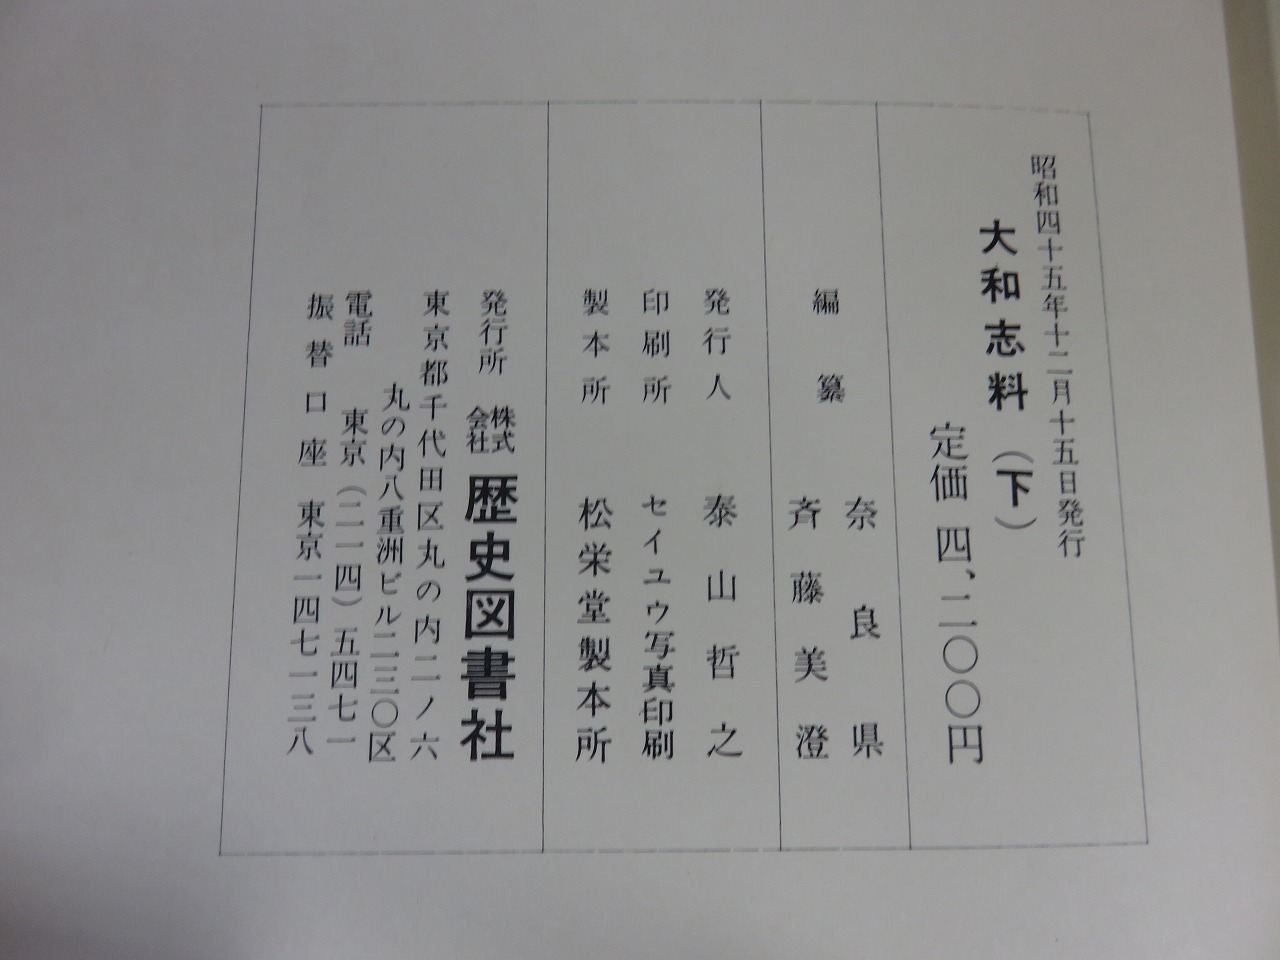 昭和四十五年十二月十五日発行
大和志料（下）
定価 四、二〇〇円
編纂 奈良県
斉藤美澄
発行人 泰山哲之
印刷所 セイユウ写真印刷
製本所 松栄堂製本所
発行所 株式会社 歴史図書社
東京都千代田区丸の内二ノ六
丸の内八重洲ビル二三〇区
電話 東京（二一四）五四七一
振替口座 東京一四七一三八